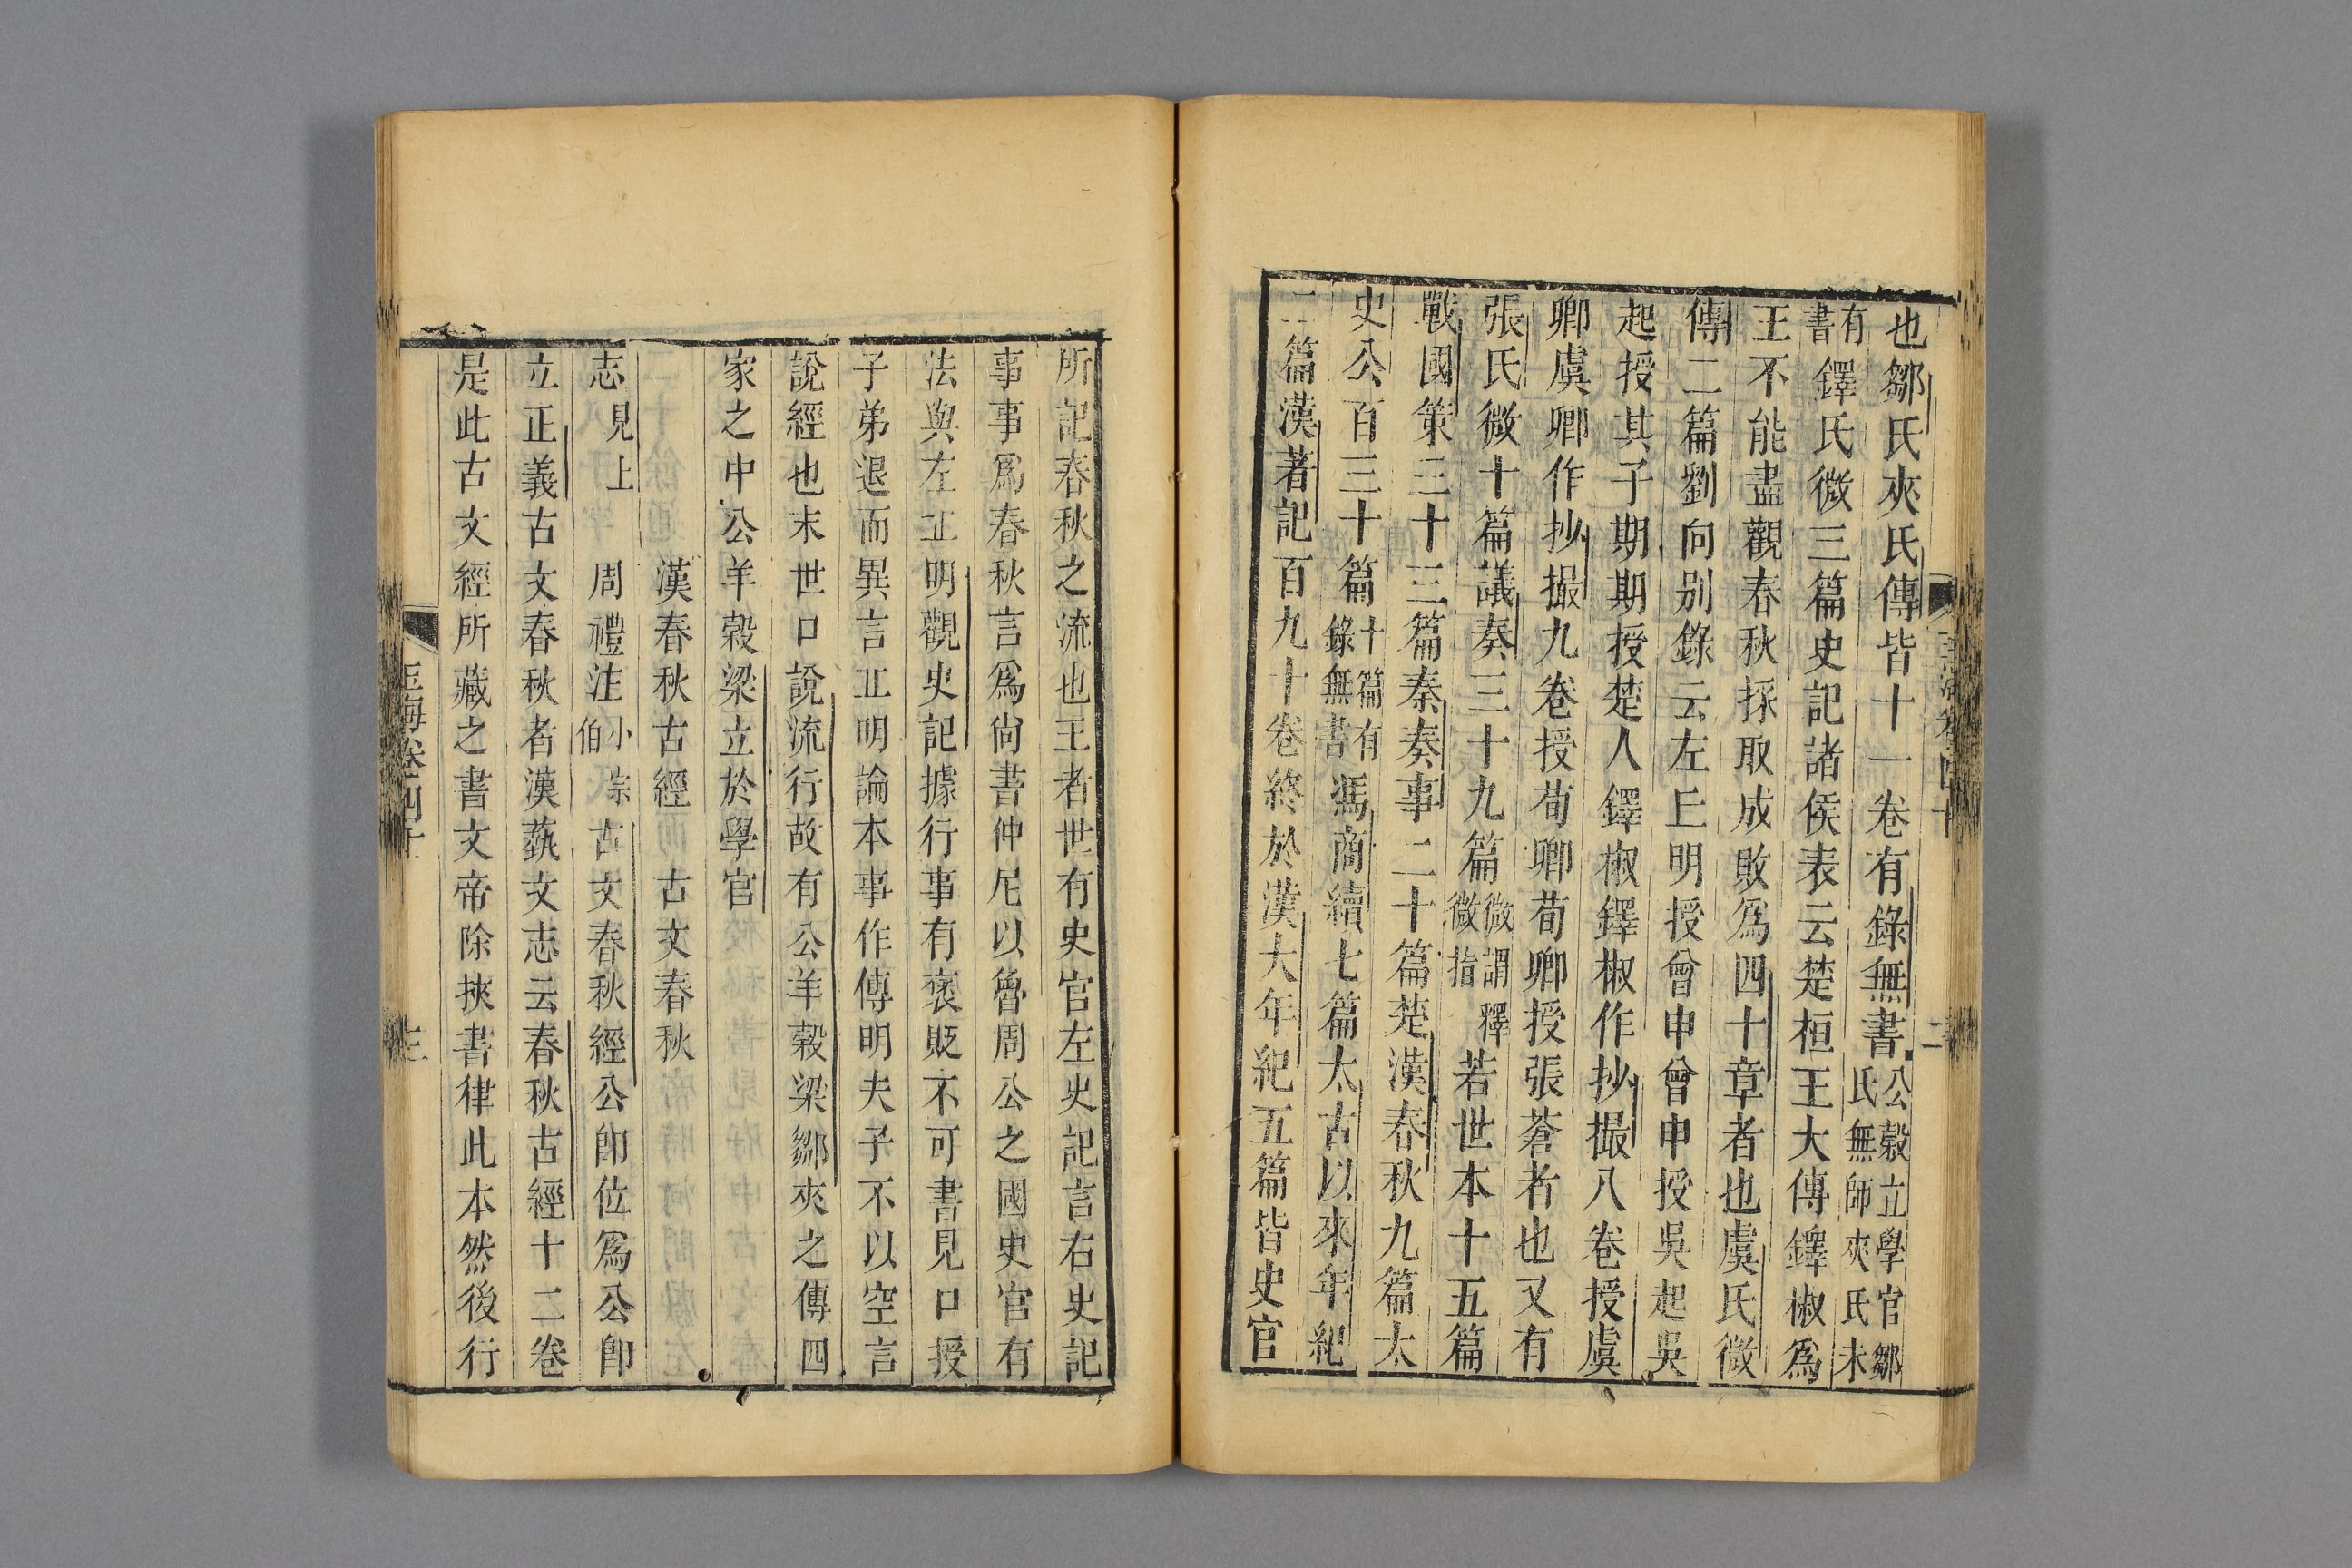 也鄒氏夾氏傳皆十一卷有錄無書公穀立學官鄒氏無師夾氏未
有書鐸氏微三篇史記諸侯表云楚桓王大傅鐸椒爲
王不能盡觀春秋採取成敗爲四十章者也虞氏微
傳二篇劉向别錄云左丘明授曾申曾申授吳起吳
起授其子期期授楚人鐸椒鐸椒作抄撮八卷授虞
卿虞卿作抄撮九卷授荀卿荀卿授張蒼者也又有
張氏微十篇議奏三十九篇微謂釋微指若世本十五篇
戰國策三十三篇秦奏事二十篇楚漢春秋九篇太
史公百三十篇十篇有錄無書馮商續七篇太古以來年紀
二篇漢著記百九十卷終於漢大年紀五篇皆史官
玉海卷四十
二
所記春秋之流也王者世有史官左史記言右史記
事事爲春秋言爲尙書仲尼以魯周公之國史官有
法與左丘明觀史記據行事有褒貶不可書見口授
子弟退而異言丘明論本事作傳明夫子不以空言
說經也末世口說流行故有公羊穀梁鄒夾之傳四
家之中公羊穀梁立於學官
漢春秋古經 古文春秋
志見上 周禮注小宗伯古文春秋經公卽位爲公卽
立正義古文春秋者漢蓺文志云春秋古經十二卷
是此古文經所藏之書文帝除挾書律此本然後行
玉海卷四十
三